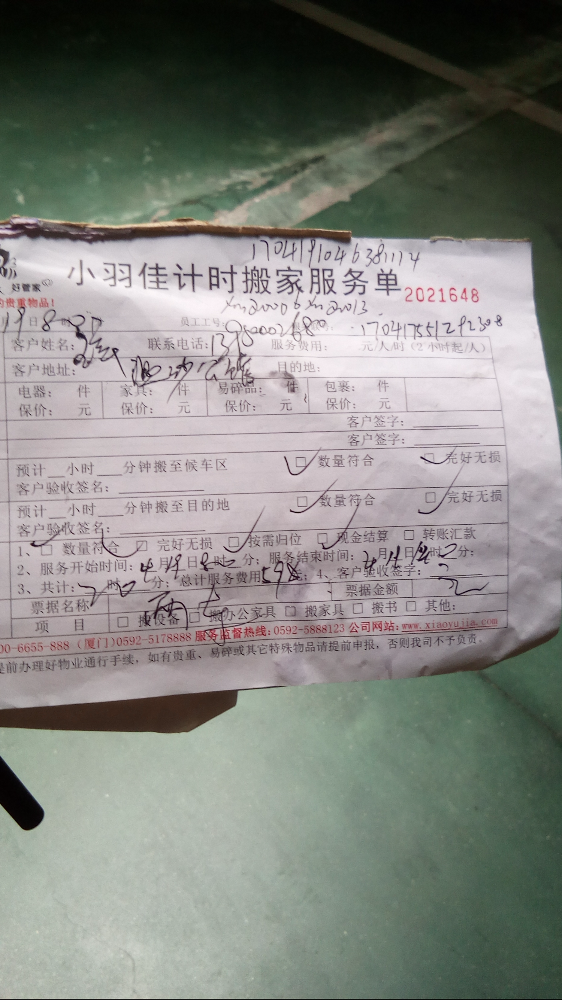 17041910463811114
好管家
小羽佳计时搬家服务单 2021648
的贵重物品!
xm20006 xm2013
日 员工工号:
170417551292308
客户姓名: 联系电话: 服务费用: 元/人/时(2小时起/人)
客户地址: 目的地:
电器: 件 家具: 件 易碎品: 件 包裹: 件
保价: 元 保价: 元 保价: 元 保价: 元
客户签字:
客户签字:
预计__小时__分钟搬至候车区 □ 数量符合 □ 完好无损
客户验收签名:
预计__小时__分钟搬至目的地 □ 数量符合 □ 完好无损
客户验收签名:
1、□ 数量符合 □ 完好无损 □ 按需归位 □ 现金结算 □ 转账汇款
2、服务开始时间: 月 日 时 分; 服务结束时间: 月 日 时 分;
3、共计: 时 分; 总计服务费用 598; 4、客户验收签字:
票据名称 票据金额
项 目 □ 搬设备 □ 搬办公家具 □ 搬家具 □ 搬书 □ 其他:
00-6655-888 (厦门)0592-5178888 服务监督热线:0592-5888123 公司网站:www.xiaoyujia.com
提前办理好物业通行手续,如有贵重、易碎或其它特殊物品请提前申报,否则我司不予负责。